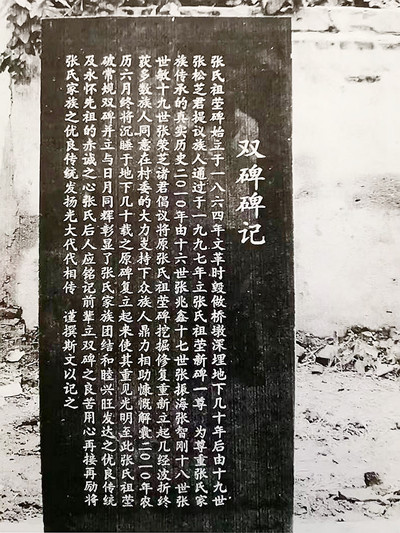 双碑碑记
张氏祖茔碑始立于一八六四年文革时毁做桥墩深埋地下几十年后由十九世
张松芝君提议族人通过于一九九七年立张氏祖茔新碑一尊 为尊重张氏家
族传承的真实历史二〇一〇年由十六世张兆鑫十七世张振海张智刚十八世张
世敏十九世张荣芝诸君倡议将原张氏祖茔碑挖掘修复重新立起几经波折终
获多数族人同意在村委的大力支持下众族人鼎力相助慷慨解囊二〇一〇年农
历六月终将沉睡于地下几十载之原碑复立起来使其重见光明至此张氏祖茔
破常规双碑并立与日月同辉彰显了张氏家族团结和睦兴旺发达之优良传统
及永怀先祖的赤诚之心张氏后人应铭记前辈立双碑之良苦用心再接再励将
张氏家族之优良传统发扬光大代代相传 谨撰斯文以记之